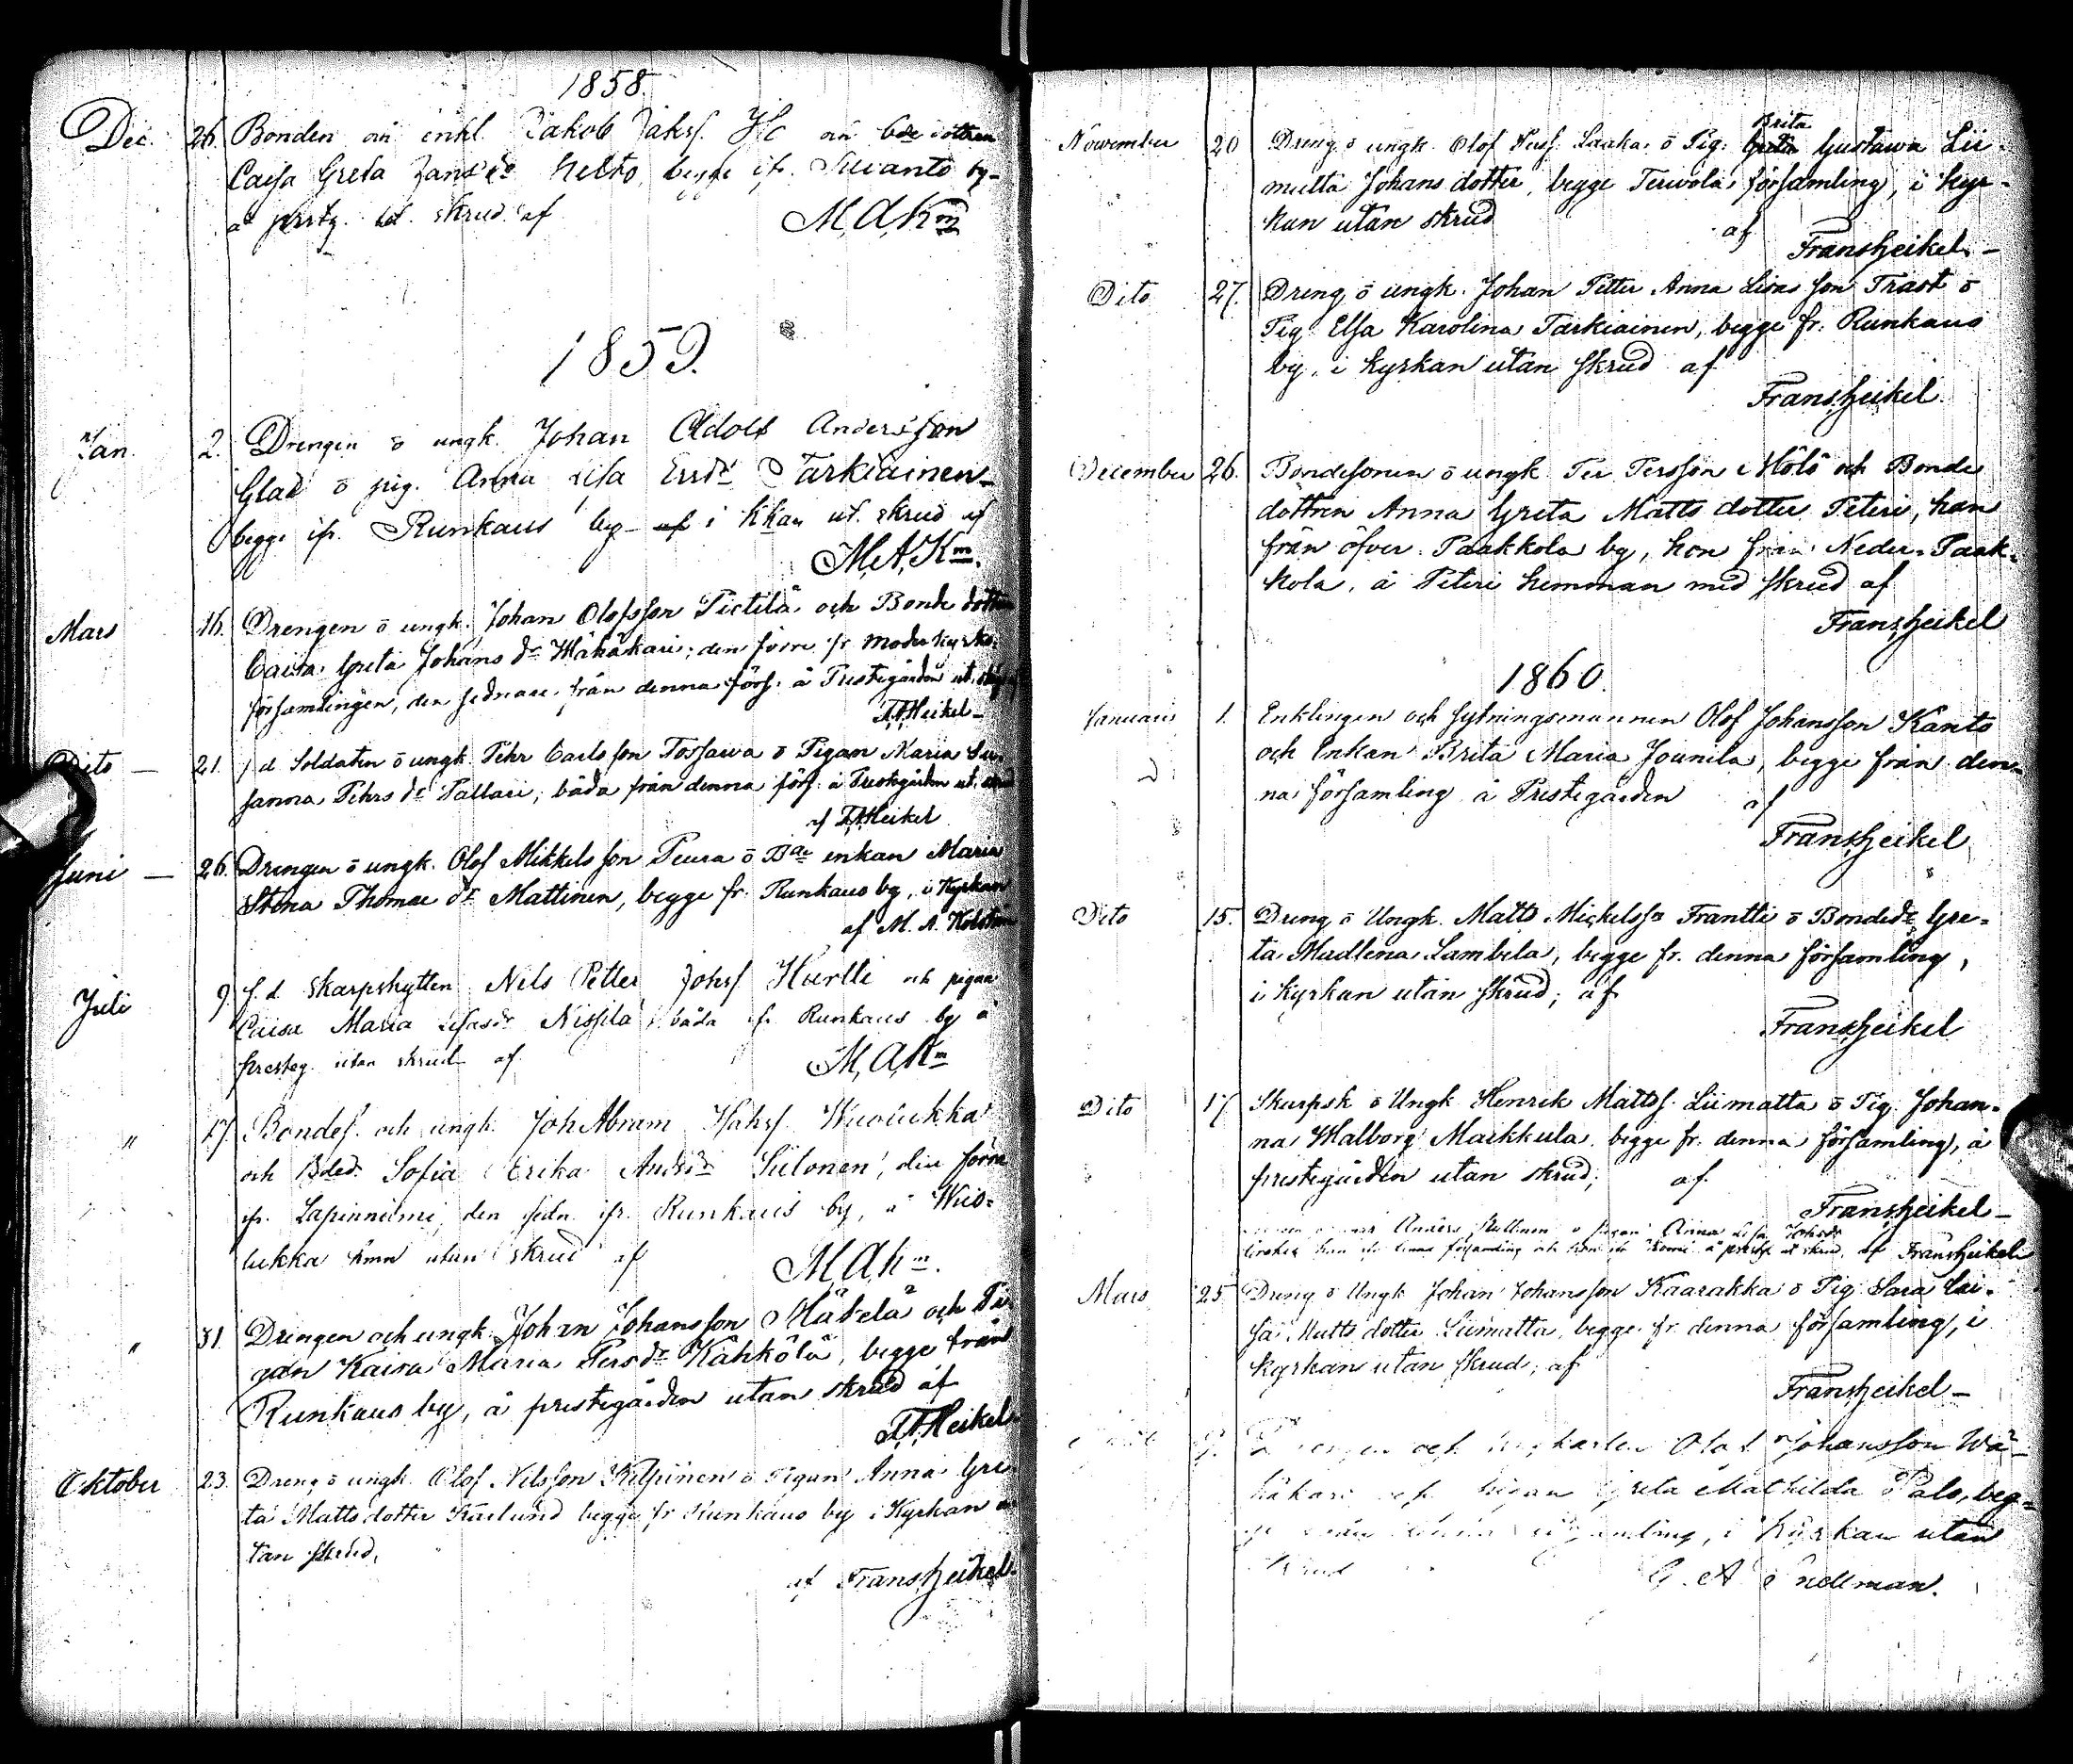 1858.
Dec. 26. Bonden och enkl. Jakob Jakss. och Bde dottren
Caisa Greta Zansdr Helto, begge ifr. Suvanto by
å prstg. ut. skrud af M. A. Km
1859.
Jan. 2. Drengen o ungk. Johan Adolf Andersson
Glad o pig. Anna Lisa Ersdr Tarkiainen
begge ifr. Runkaus by af i kkan ut. skrud af
M. A. Km.
Mars 16. Drengen o ungk. Johan Olofsson Pietilä och Bonde dottren
Caisa Greta Johans dr Wähäkari; den förre fr. moderkyrko-
församlingen, den sednare från denna förs. å Prestegården ut. skrud
F. F. Heikel
Dito 21. f d Soldaten o ungk. Pehr Carlsson Tossawa o Pigan Maria Su-
sanna Pehrs dr Tallari; båda från denna förs. å Prestegården ut. skrud
af F. F. Heikel
Juni 26. Drengen o ungk. Olof Mikkelsson Peura o Bde enkan Maria
Stina Thomae dr Mattinen, begge fr. Runkaus by, i Kyrkan
af M. A.
Juli 9. f. d. Skarpskytten Nils Petter Johss. Hurtti och pigan
Caisa Maria Nissilä båda fr. Runkaus by å
presteg. utan skrud af M. A. Km
" 17. Bondes. och ungk. Joh Abram Wuolukka
och Bded. Sofia Erika Andrsdr Siitonen, den förre
ifr. Lapinniemi den sedn. ifr. Runkaus by, å Wuo-
lukka hmn utan skrud af M. A. Km.
" 31. Drengen och ungk. Johan Johansson Mäkelä och Pi-
gan Kaisa Maria Persdr Kähkölä, begge från
Runkaus by, å prestegården utan skrud af
F. F. Heikel
Oktober 23. Dreng o ungk. Olof Nilsson Kilpinen o Pigan Anna Gre-
ta Matts dotter Karlund begge fr Runkaus by i Kyrkan u-
tan skrud,
af Frans Heikel.
November 20 Dreng o ungk. Olof Laaka o Pig. Greta Brita Gustawa Lii-
matta Johans dotter, begge Terwola församling, i kyr-
kan utan skrud af
Frans Heikel
Dito 27. Dreng o ungk. Johan Petter Anna Lisas son Trast o
Pig Elsa Karolina Tarkiainen, begge fr. Runkaus
by, i kyrkan utan skrud af
Frans Heikel.
December 26. Bondesonen o ungk. Per Persson Mölö och Bonde
dottren Anna Greta Matts dotter Peteri, han
från öfver Paakkola by, hon från Neder Paak-
kola, å Peteri hemman med skrud af
Frans Heikel
1860.
Januari 1. Enklingen och sytningsmannen Olof Johansson Kanto
och Enkan Brita Maria Jounila, begge från den-
na församling å Prestegården af
Frans Heikel
Dito 15. Dreng o Ungk. Matts Mickelsson Frantti o Bondedr Gre-
ta Madlena Lambela, begge fr. denna församling,
i Kyrkan utan skrud; af
Frans Heikel
Dito 17 Skarpsk o Ungk Henrik Mattss. Liimatta o Pig. Johan-
na Walborg Maikkula begge fr. denna församling, å
prestegården utan skrud; af
Frans Heikel
Anders o Pigan Anna Lisa
denna församling och ut skrud, af Frans Heikel
Mars 25 Dreng o Ungk Johan Johansson Kaarakka o Pig Sara Lii-
sa Matts dotter Liimatta, begge fr. denna församling, i
kyrkan utan skrud; af
Frans Heikel
9. och Olof Johansson Wä-
häkari och pigan Greta Mathilda Palo, beg-
ge från denna församling, i Kyrkan utan
skrud G. A. Snellman.